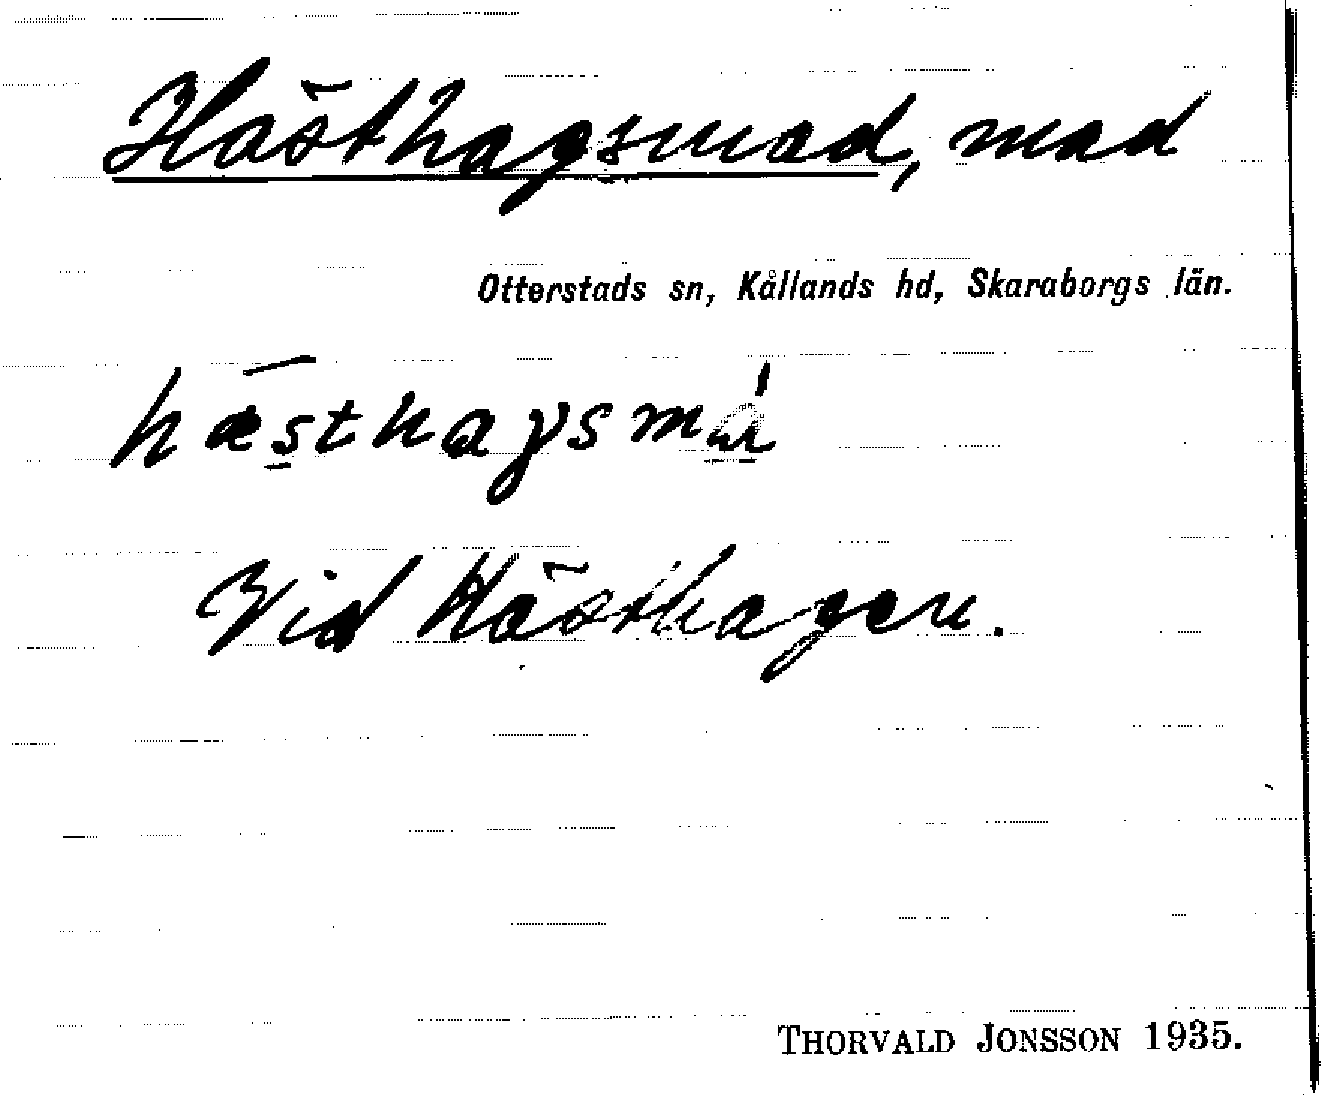 Hästhagsmad, mad
Otterstads sn, Kållands hd, Skaraborgs län.
hæsthagsmá
Vid Hästhagen.
THORVALD JONSSON 1935.